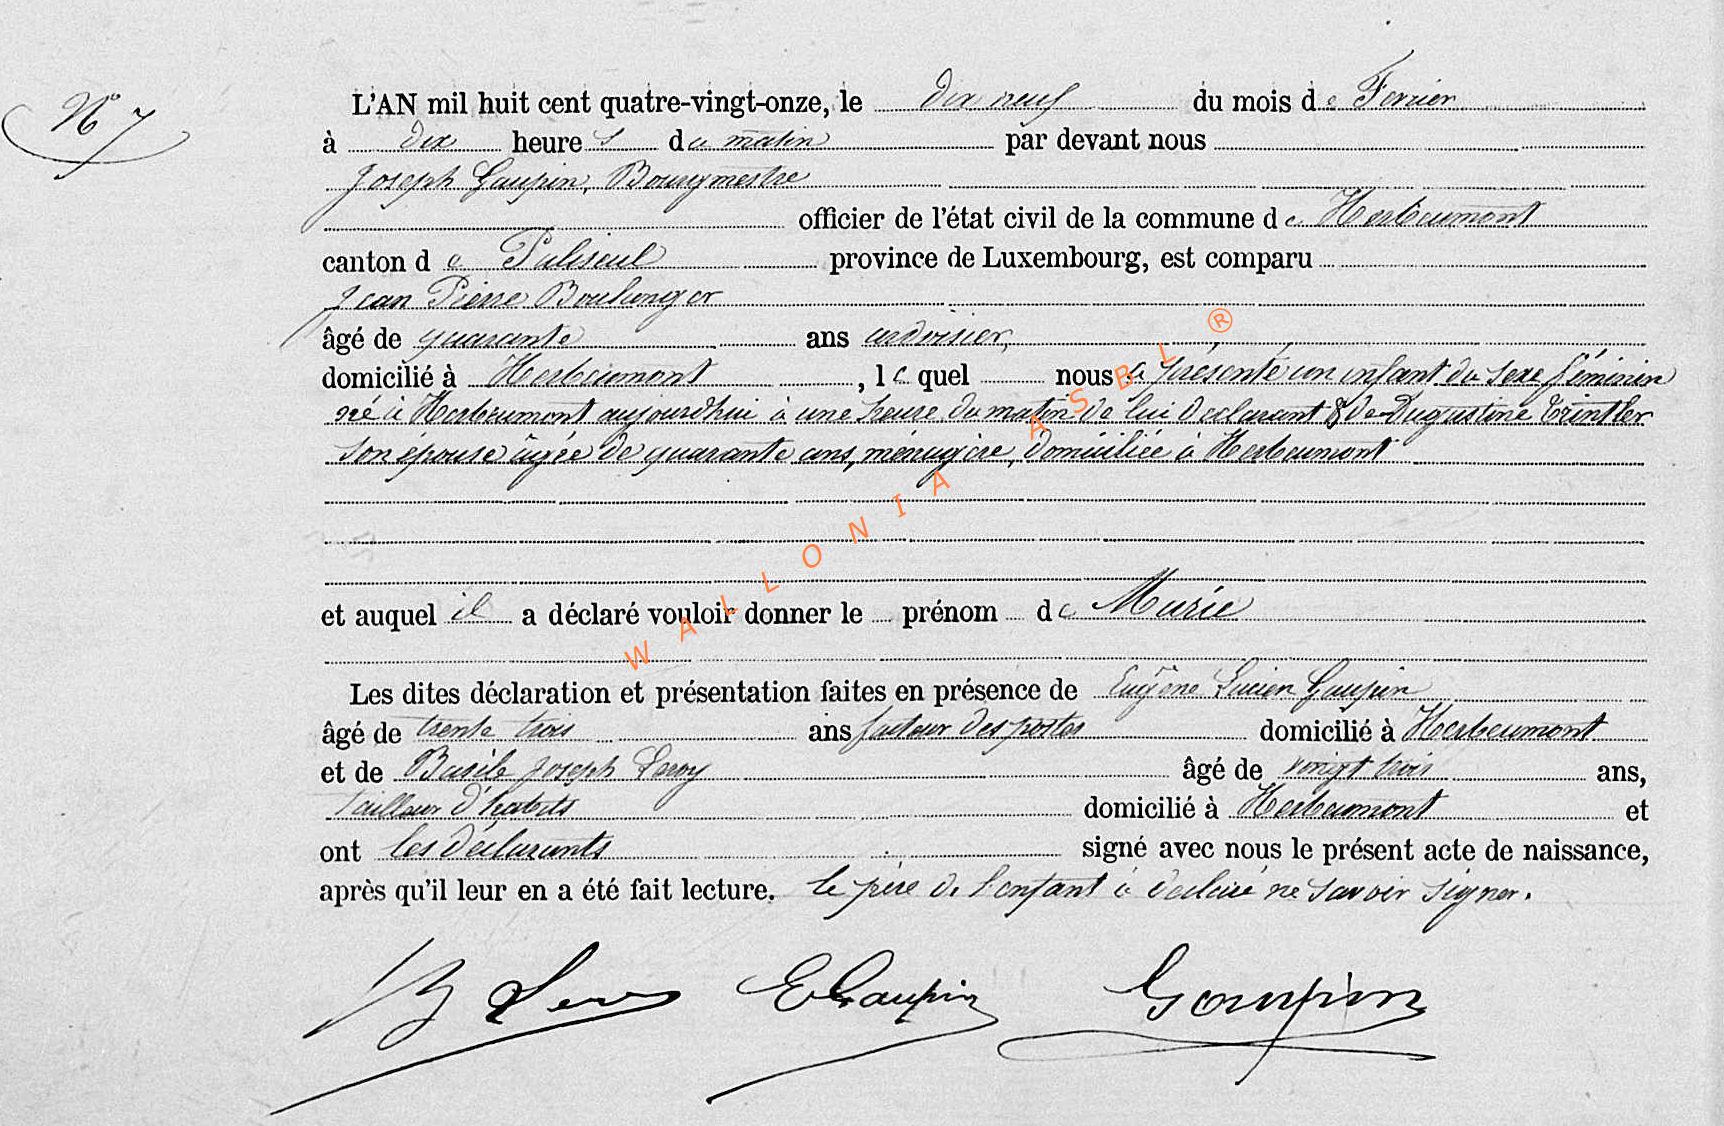 N° 7
L'AN mil huit cent quatre-vingt-onze, le dix neuf du mois de Fevrier
à dix heures du matin par devant nous
Joseph Gaupin, Bourgmestre
officier de l'état civil de la commune de Herbeumont
canton de Paliseul province de Luxembourg, est comparu
Jean Pierre Boulanger
âgé de quarante ans ardoisier,
domicilié à Herbeumont, lequel nous a présenté un enfant du sexe féminin
né à Herbeumont aujourdhui à une heure du matin de lui declarant & de Augustine Trintler
son épouse âgée de quarante ans, ménagère, domiciliée à Herbeumont
et auquel il a déclaré vouloir donner le prénom de Marie
Les dites déclaration et présentation faites en présence de Eugène Lucien Gaupin
âgé de trente trois ans facteur des postes domicilié à Herbeumont
et de Basile Joseph Leroy âgé de vingt trois ans,
tailleur d'habits domicilié à Herbeumont et
ont les déclarants signé avec nous le présent acte de naissance,
après qu'il leur en a été fait lecture. le père de l'enfant à déclaré ne savoir signer.
B Leroy E Gaupin Gaupin
WALLONIA ASBL ®